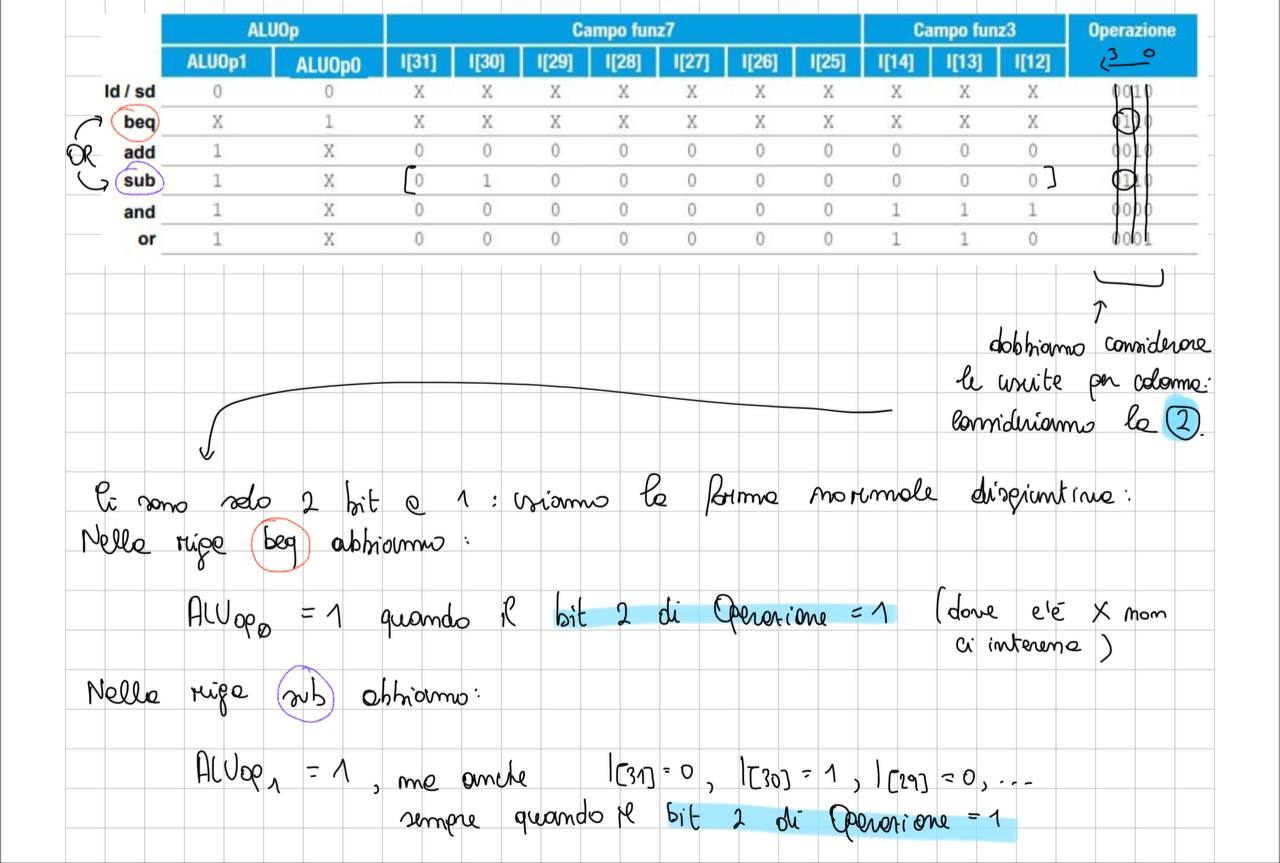 ALUOp Campo funz7 Campo funz3 Operazione
ALUOp1 ALUOp0 I[31] I[30] I[29] I[28] I[27] I[26] I[25] I[14] I[13] I[12] 3 0
ld / sd 0 0 X X X X X X X X X X 0010
beq X 1 X X X X X X X X X X 0110
OR
add 1 X 0 0 0 0 0 0 0 0 0 0 0010
sub 1 X [0 1 0 0 0 0 0 0 0 0] 0110
and 1 X 0 0 0 0 0 0 0 1 1 1 0000
or 1 X 0 0 0 0 0 0 0 1 1 0 0001
dobbiamo considerare
le uscite per colonna:
consideriamo la 2.
Ci sono solo 2 bit a 1 : usiamo la forma normale disgiuntiva:
Nella riga beq abbiamo :
ALUOp0 = 1 quando il bit 2 di Operazione = 1 (dove c'è X non
ci interessa )
Nella riga sub abbiamo:
ALUOp1 = 1 , ma anche I[31] = 0, I[30] = 1, I[29] = 0, ...
sempre quando il bit 2 di Operazione = 1